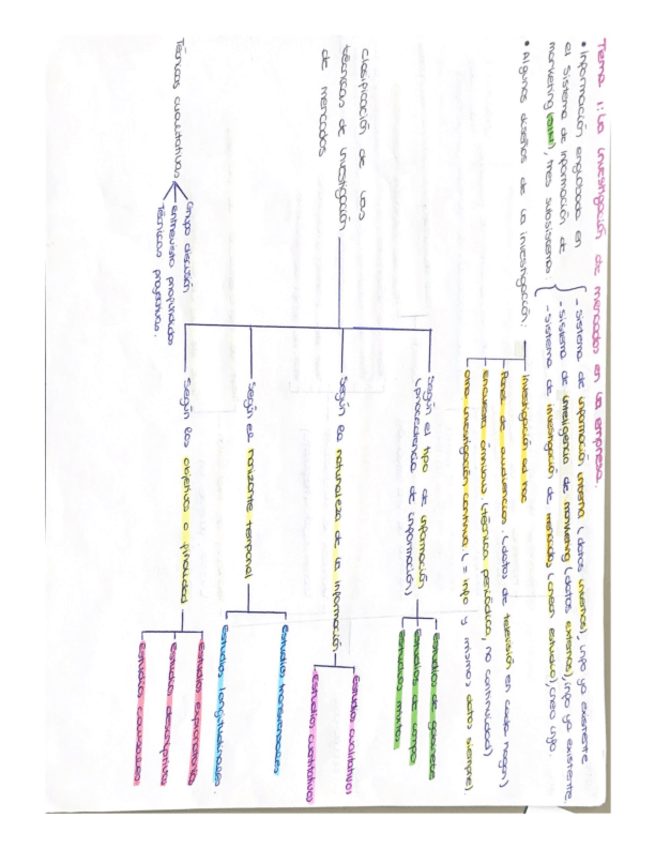 Tema 1: La investigación de mercados en la empresa.
• Información englobada en el sistema de información de marketing (SIM), tres subsistemas:
- sistema de información interna (datos internos), info ya existente
- sistema de inteligencia de marketing (datos externos), info ya existente.
- sistema de investigación de mercados (crean estudio), creo info.
• Algunos diseños de la investigación:
investigación ad hoc
Panel de audiencias. (datos de televisión en cada hogar)
encuesta ómnibus (técnica periódica, no continuidad)
otra investigación continua. (= info y mismos datos siempre).
Clasificación de las
técnicas de investigación
de mercados
Según el tipo de información
(procedencia de información)
Estudios de gabinete
Estudios de campo
Estudios mixtos
Según la naturaleza de la información
Estudios cualitativos
Estudios cuantitativos
Según el horizonte temporal
Estudios transversales
Estudios longitudinales.
Según los objetivos o finalidad
Estudios exploratorio
Estudios descriptivos
Estudios causales
Técnicas cualitativas
Grupo discusión
entrevista profundidad
Técnicas proyectivas.